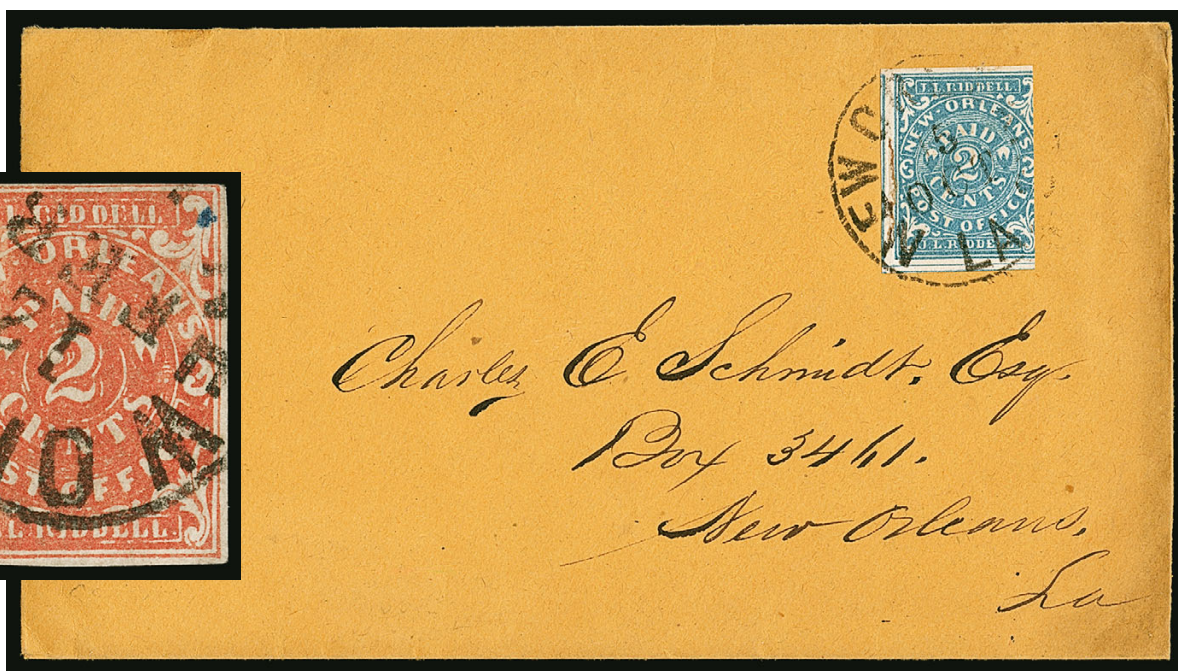 J.L. RIDDELL.
NEW ORLEANS
PAID
2
CENTS
POST OFFICE
J.L. RIDDELL.
5
LA
Charles E Schmidt, Esq.
Box 3461.
New Orleans,
La
L. RIDDELL
ORLEANS
PAID
2
CENTS
ST OFFI
L. RIDDELL.